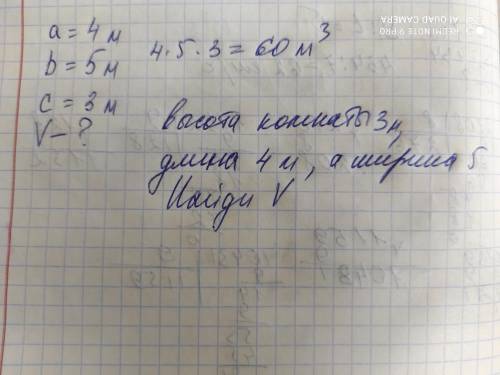 a = 4 м
b = 5 м
c = 3 м
V - ?
4 · 5 · 3 = 60 м³
высота комнаты 3 м,
длина 4 м, а ширина 5
Найди V
REDMI NOTE 9 PRO
AI QUAD CAMERA